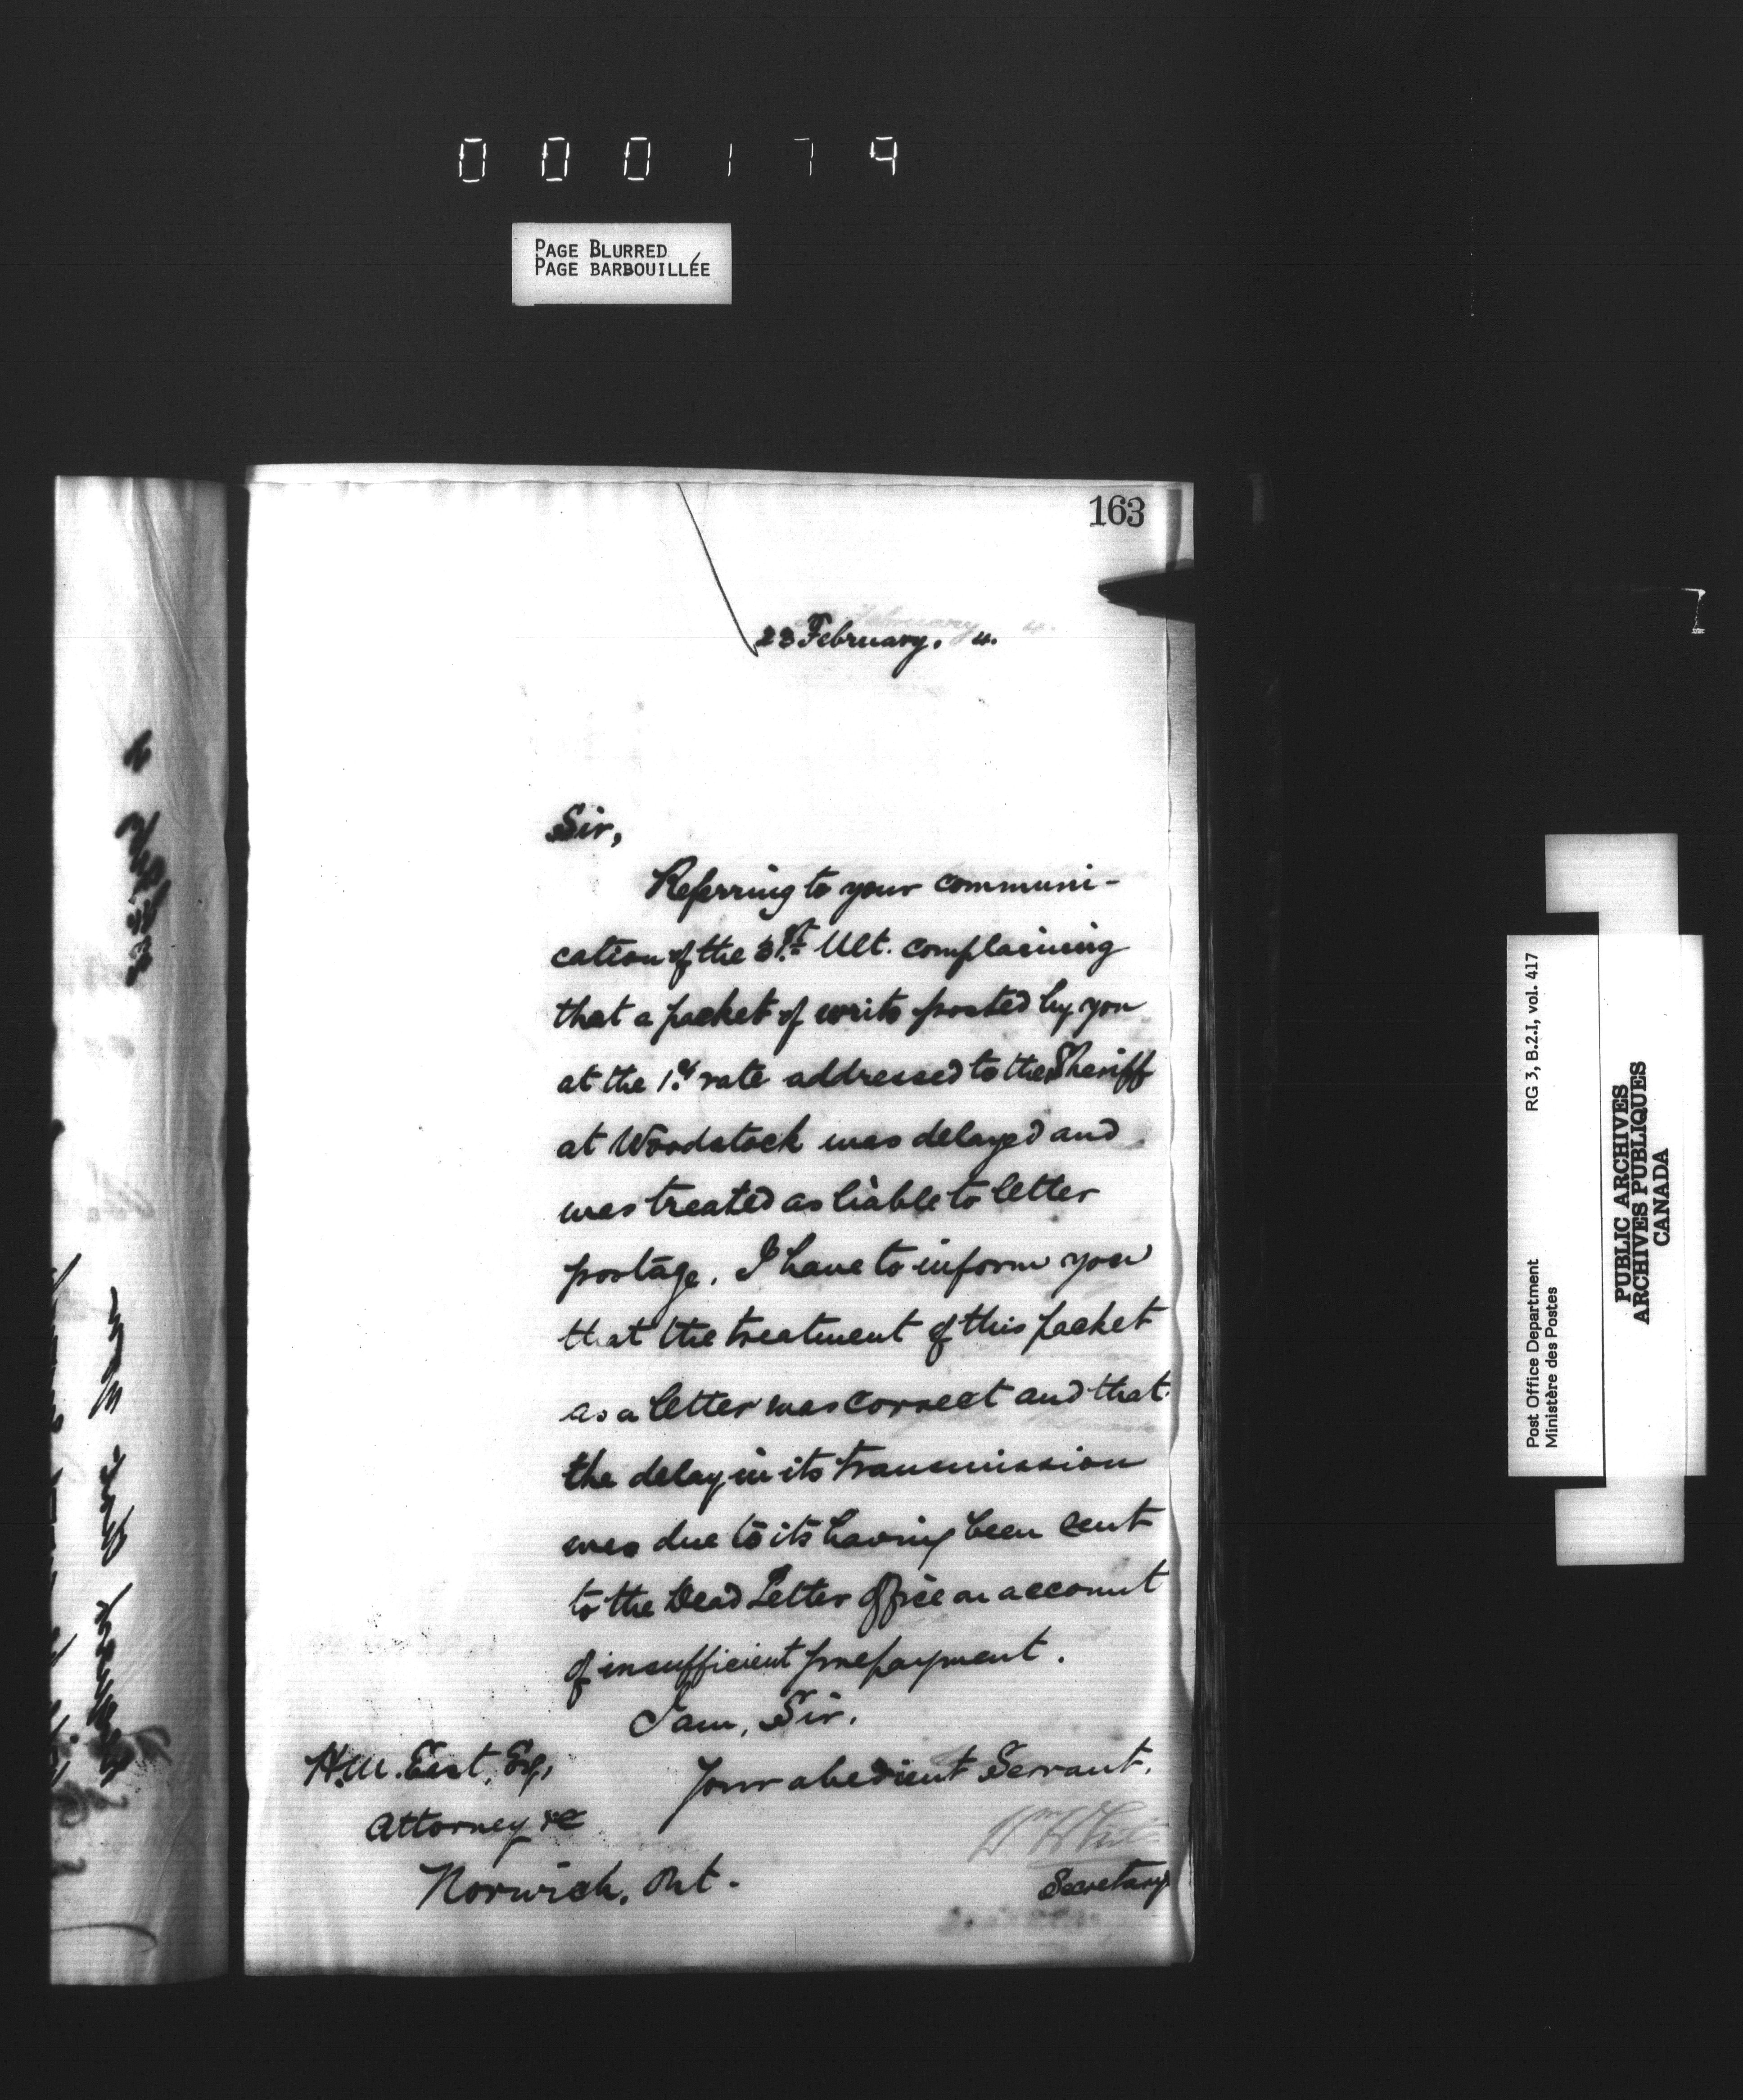 000179
PAGE BLURRED
PAGE BARBOUILLÉE
163
23 February. 4.
Sir,
Referring to your communi-
cation of the 31st Ult. complaining
that a packet of writs posted by you
at the 1.¢ rate addressed to the Sheriff
at Woodstock was delayed and
was treated as liable to letter
postage. I have to inform you
that the treatment of this packet
as a letter was correct and that
the delay in its transmission
was due to its having been sent
to the Dead Letter Office on account
of insufficient prepayment.
I am, Sir,
Your obedient Servant,
Wm White
Secretary
H.M. East, Esq,
Attorney &c
Norwich, Ont.
Post Office Department
Ministère des Postes
RG 3, B.2.I, vol. 417
PUBLIC ARCHIVES
ARCHIVES PUBLIQUES
CANADA